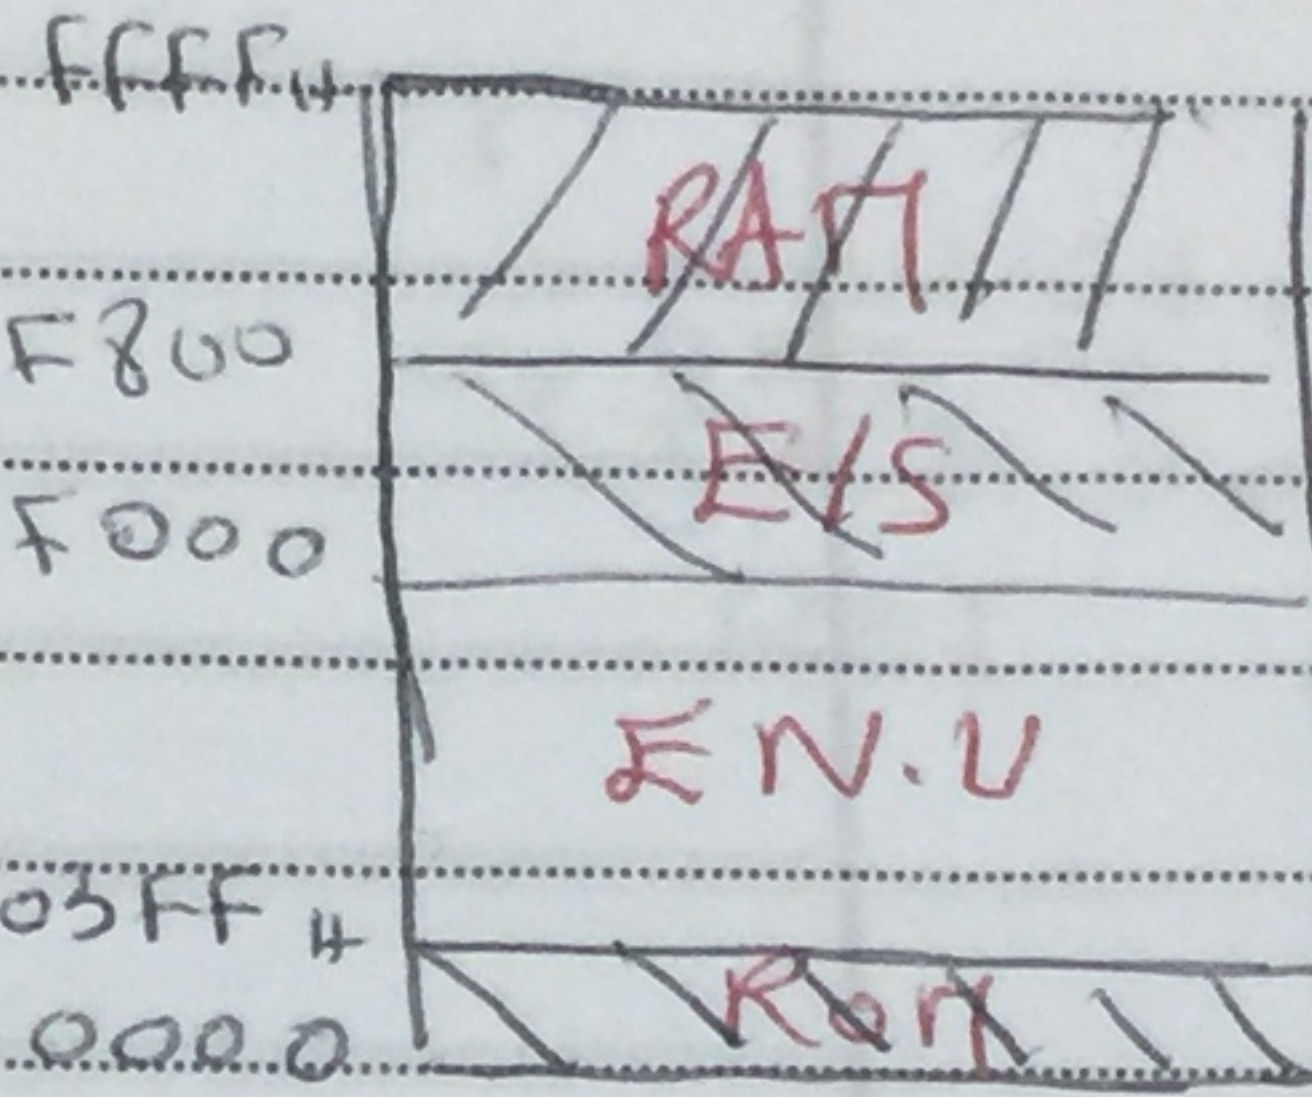 FFFFH
RAM
F800
E/S
F000
EN.U
03FFH
Rom
0000